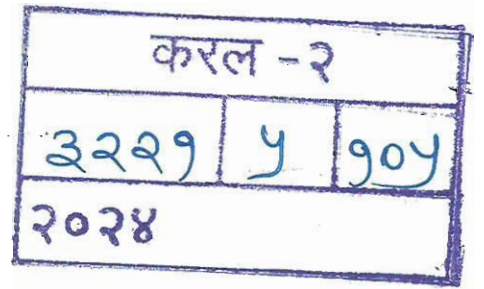 करल - २
३२२१ ५ १०५
२०२४